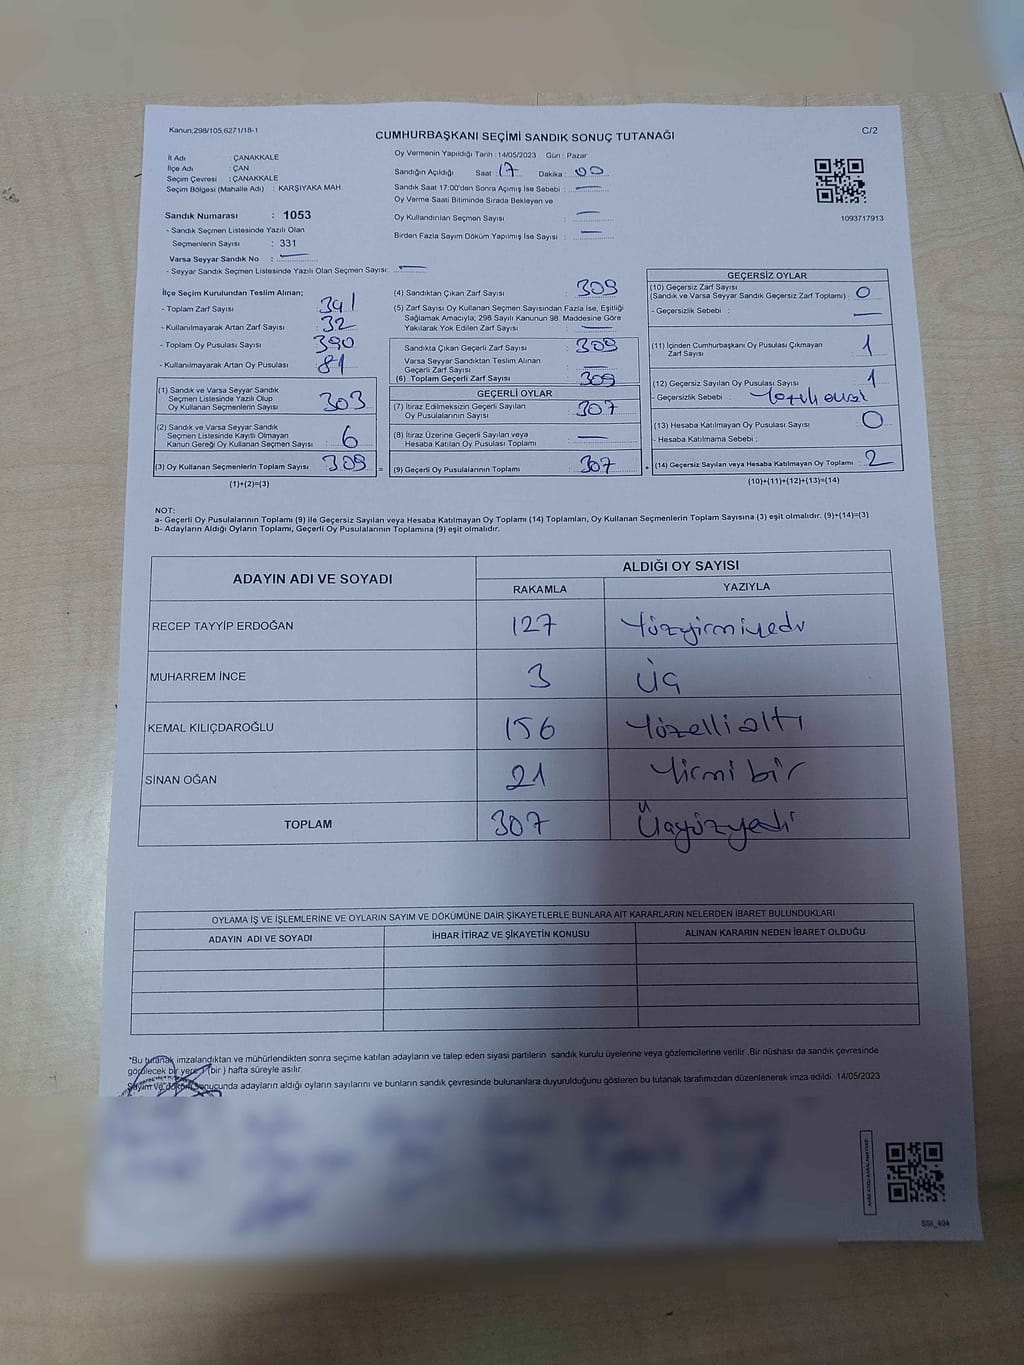 Kanun,298/105,6271/18-1
CUMHURBAŞKANI SEÇİMİ SANDIK SONUÇ TUTANAĞI
C/2
İl Adı : ÇANAKKALE
İlçe Adı : ÇAN
Seçim Çevresi : ÇANAKKALE
Seçim Bölgesi (Mahalle Adı) : KARŞIYAKA MAH.
Sandık Numarası : 1053
- Sandık Seçmen Listesinde Yazılı Olan
Seçmenlerin Sayısı : 331
Varsa Seyyar Sandık No : —
- Seyyar Sandık Seçmen Listesinde Yazılı Olan Seçmen Sayısı: —
Oy Vermenin Yapıldığı Tarih : 14/05/2023 Gün : Pazar
Sandığın Açıldığı Saat : 17 Dakika : 00
Sandık Saat 17:00'den Sonra Açımış İse Sebebi : —
Oy Verme Saati Bitiminde Sırada Bekleyen ve
Oy Kullandırılan Seçmen Sayısı —
Birden Fazla Sayım Döküm Yapılmış İse Sayısı : —
1093717913
İlçe Seçim Kurulundan Teslim Alınan;
- Toplam Zarf Sayısı : 341
- Kullanılmayarak Artan Zarf Sayısı : 32
- Toplam Oy Pusulası Sayısı : 390
- Kullanılmayarak Artan Oy Pusulası : 81
(1) Sandık ve Varsa Seyyar Sandık
Seçmen Listesinde Yazılı Olup
Oy Kullanan Seçmenlerin Sayısı : 303
(2) Sandık ve Varsa Seyyar Sandık
Seçmen Listesinde Kayıtlı Olmayan
Kanun Gereği Oy Kullanan Seçmen Sayısı : 6
(3) Oy Kullanan Seçmenlerin Toplam Sayısı : 309 =
(1)+(2)=(3)
(4) Sandıktan Çıkan Zarf Sayısı : 309
(5) Zarf Sayısı Oy Kullanan Seçmen Sayısından Fazla İse, Eşitliği
Sağlamak Amacıyla; 298 Sayılı Kanunun 98. Maddesine Göre
Yakılarak Yok Edilen Zarf Sayısı : —
Sandıkta Çıkan Geçerli Zarf Sayısı : 309
Varsa Seyyar Sandıktan Teslim Alınan
Geçerli Zarf Sayısı : —
(6) Toplam Geçerli Zarf Sayısı : 309
GEÇERLİ OYLAR
(7) İtiraz Edilmeksizin Geçerli Sayılan
Oy Pusulalarının Sayısı : 307
(8) İtiraz Üzerine Geçerli Sayılan veya
Hesaba Katılan Oy Pusulası Toplamı : —
(9) Geçerli Oy Pusulalarının Toplamı : 307 +
GEÇERSİZ OYLAR
(10) Geçersiz Zarf Sayısı
(Sandık ve Varsa Seyyar Sandık Geçersiz Zarf Toplamı) : 0
- Geçersizlik Sebebi : —
(11) İçinden Cumhurbaşkanı Oy Pusulası Çıkmayan
Zarf Sayısı : 1
(12) Geçersiz Sayılan Oy Pusulası Sayısı : 1
- Geçersizlik Sebebi :
(13) Hesaba Katılmayan Oy Pusulası Sayısı : 0
- Hesaba Katılmama Sebebi :
(14) Geçersiz Sayılan veya Hesaba Katılmayan Oy Toplamı : 2
(10)+(11)+(12)+(13)=(14)
NOT:
a- Geçerli Oy Pusulalarının Toplamı (9) ile Geçersiz Sayılan veya Hesaba Katılmayan Oy Toplamı (14) Toplamları, Oy Kullanan Seçmenlerin Toplam Sayısına (3) eşit olmalıdır. (9)+(14)=(3)
b- Adayların Aldığı Oyların Toplamı, Geçerli Oy Pusulalarının Toplamına (9) eşit olmalıdır.
ADAYIN ADI VE SOYADI ALDIĞI OY SAYISI
RAKAMLA YAZIYLA
RECEP TAYYİP ERDOĞAN 127 Yüzyirmiyedi
MUHARREM İNCE 3 Üç
KEMAL KILIÇDAROĞLU 156 Yüzellialtı
SİNAN OĞAN 21 Yirmi bir
TOPLAM 307 Üçyüzyedi
OYLAMA İŞ VE İŞLEMLERİNE VE OYLARIN SAYIM VE DÖKÜMÜNE DAİR ŞİKAYETLERLE BUNLARA AİT KARARLARIN NELERDEN İBARET BULUNDUKLARI
ADAYIN ADI VE SOYADI İHBAR İTİRAZ VE ŞİKAYETİN KONUSU ALINAN KARARIN NEDEN İBARET OLDUĞU
*Bu tutanak imzalandıktan ve mühürlendikten sonra seçime katılan adayların ve talep eden siyasi partilerin sandık kurulu üyelerine veya gözlemcilerine verilir .Bir nüshası da sandık çevresinde
görülecek bir yere 1 (bir ) hafta süreyle asılır.
Sayım ve döküm sonucunda adayların aldığı oyların sayılarını ve bunların sandık çevresinde bulunanlara duyurulduğunu gösteren bu tutanak tarafımızdan düzenlenerek imza edildi. 14/05/2023
SSI_404